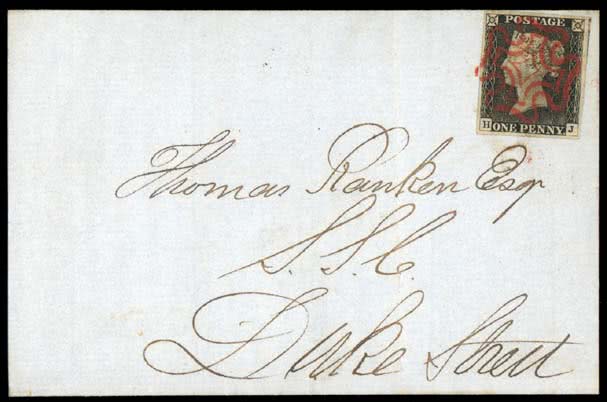 POSTAGE
H ONE PENNY J
Thomas Ranken Esqr
S.S.C.
Duke Street